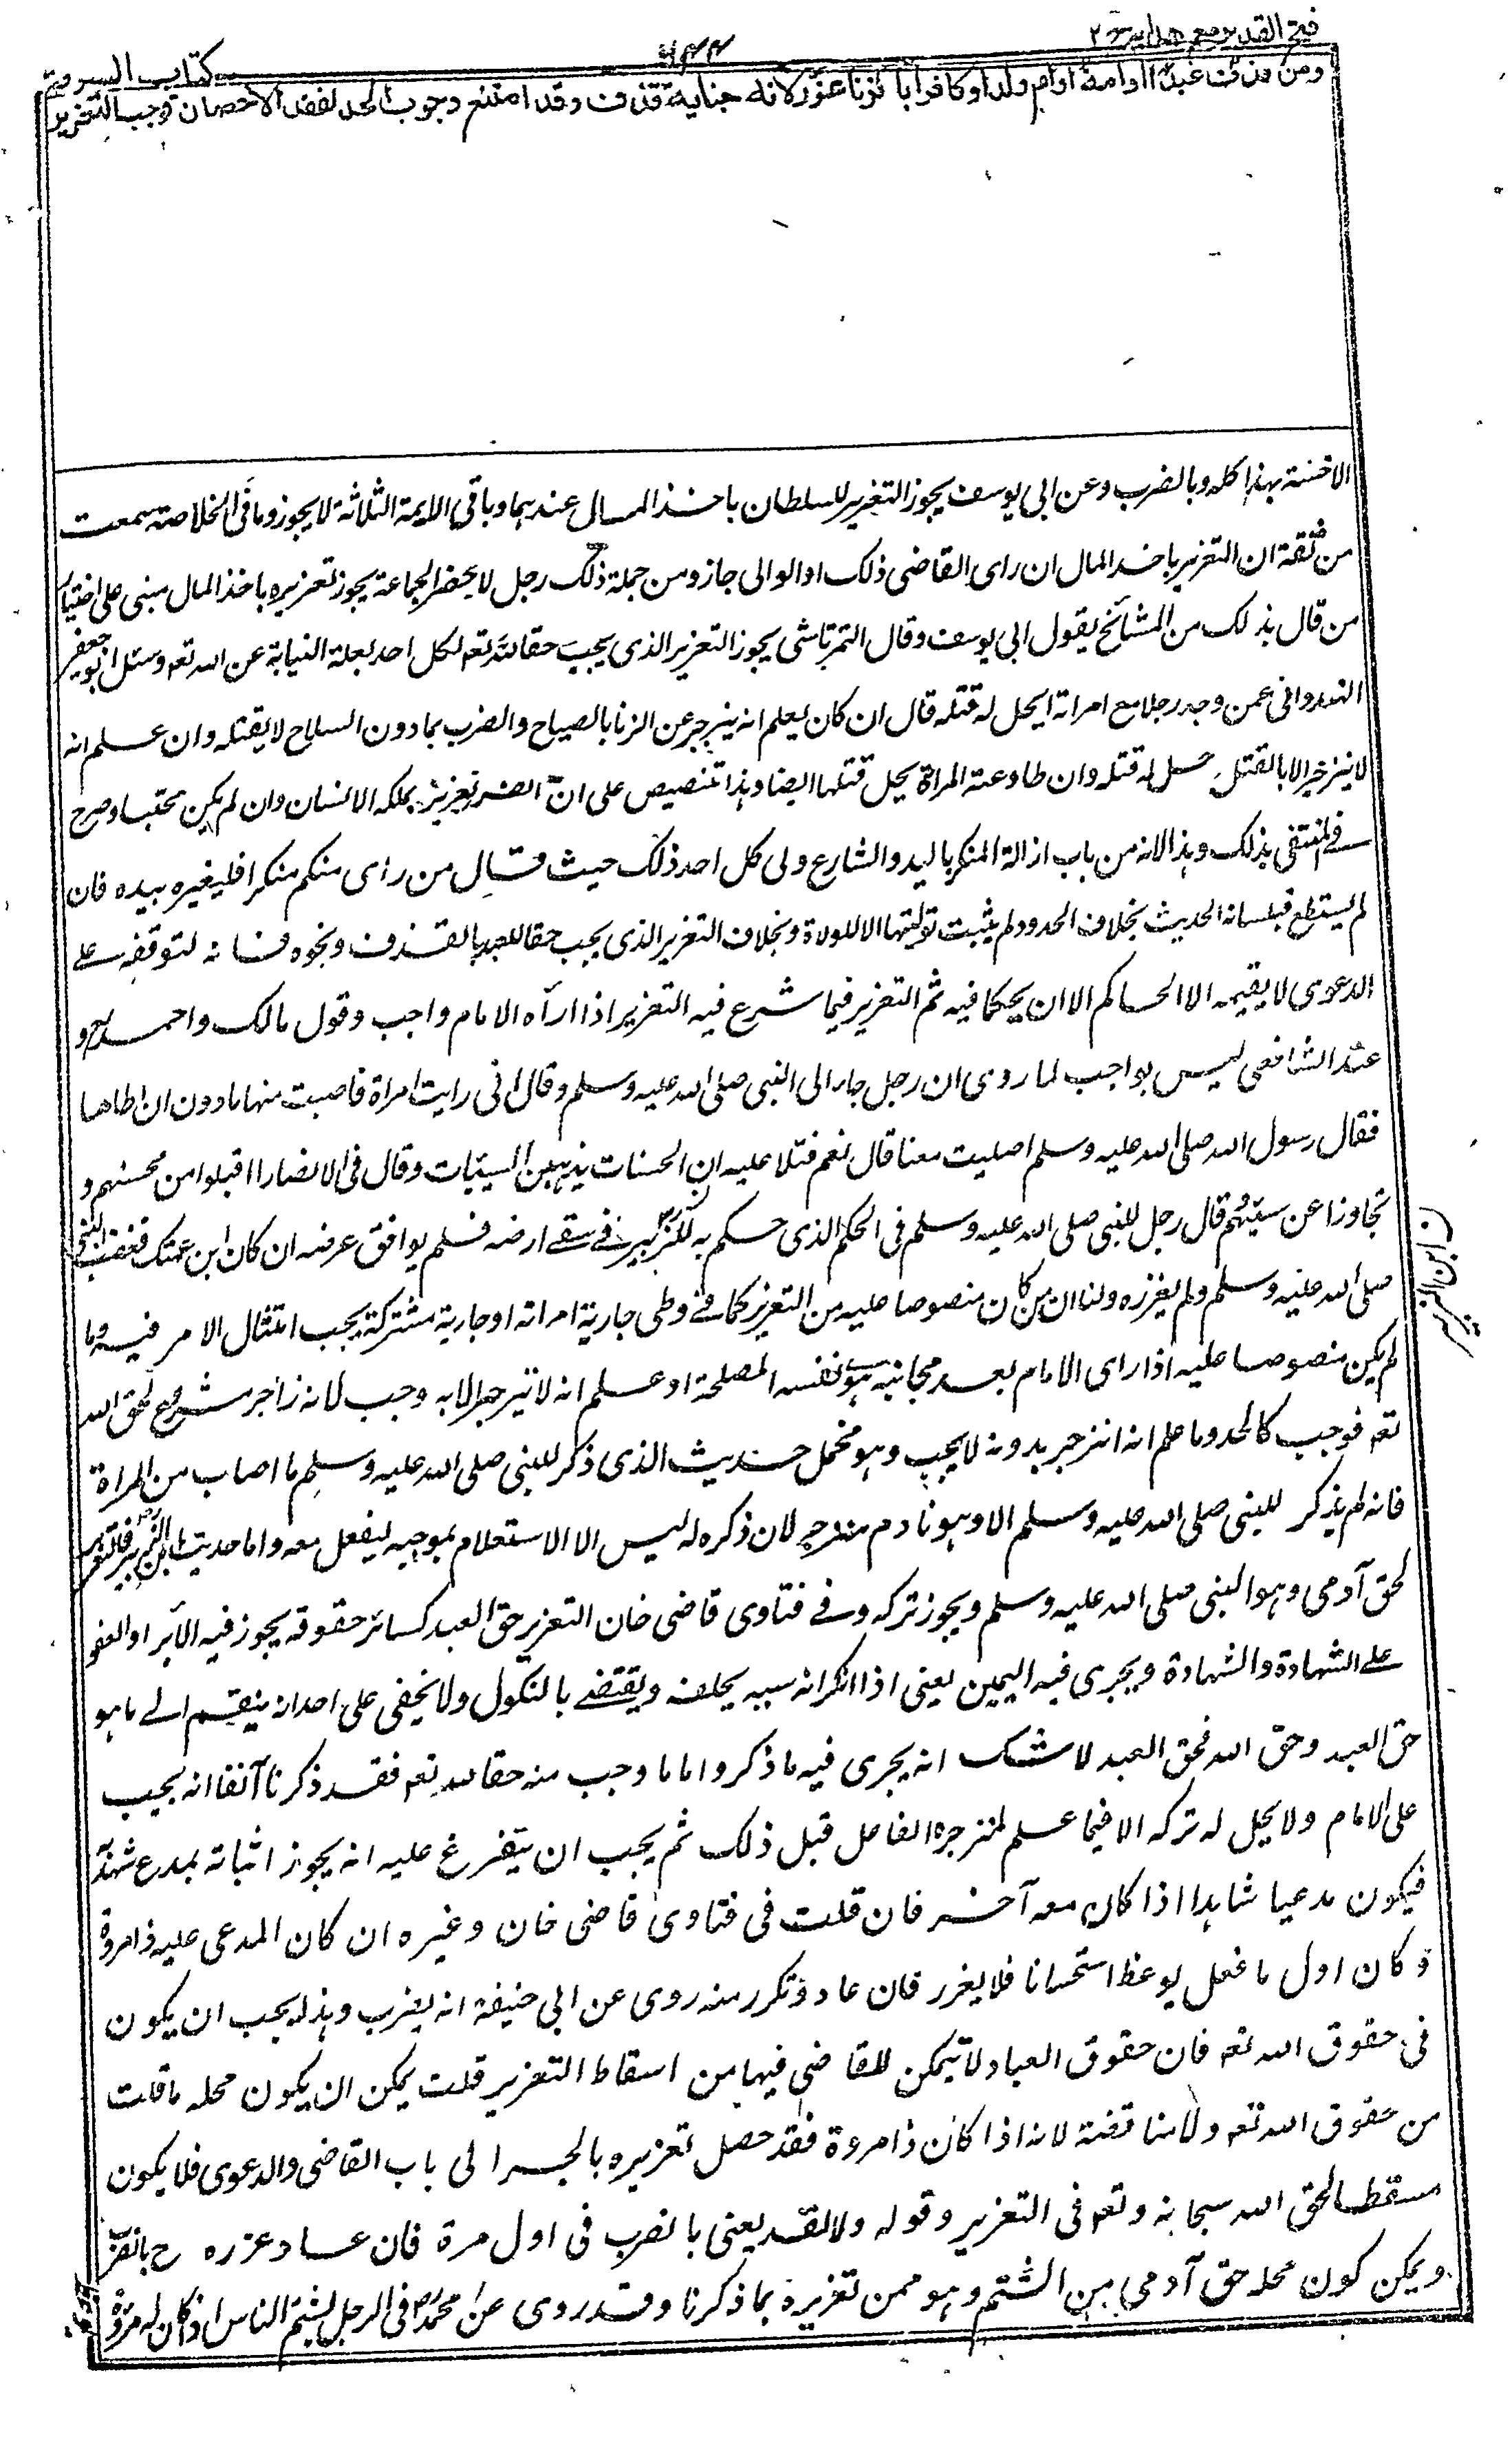 فتح القدير مع هدايه ج ٢
٦٤٤
كتاب السرقة
ومن قذف عبدا او امة او ام ولد او كافرا بالزنا عزر لانه جناية قذف وقد امتنع وجوب الحد لفقد الاحصان فوجب التعزير
الاخسة بهذا كله وبالضرب وعن ابى يوسف يجوز التعزير للسلطان باخذ المال عندهما وباقى الايمة الثلاثة لا يجوز وما فى الخلاصة سمعت
من ثقة ان التعزير باخذ المال ان راى القاضى ذلك او الوالى جاز ومن جملة ذلك رجل لا يحضر الجماعة يجوز تعزيره باخذ المال مبنى على اختيار
من قال بذلك من المشائخ بقول ابى يوسف وقال التمرتاشى يجوز التعزير الذى يجب حقا لله تعه لكل احد بعلة النيابة عن الله تعه وسئل ابو جعفر
الهندوانى عمن وجد رجلا مع امراته ايحل له قتله قال ان كان يعلم انه ينزجر عن الزنا بالصياح والضرب بما دون السلاح لا يقتله وان علم انه
لا ينزجر الا بالقتل حل له قتله وان طاوعته المراة يحل قتلها ايضا وهذا تنصيص على ان الضرب تعزير يملكه الانسان وان لم يكن محتسبا وصرح
فى المنتقى بذلك وهذا لانه من باب ازالة المنكر باليد والشارع ولى كل احد ذلك حيث قال من راى منكم منكرا فليغيره بيده فان
لم يستطع فبلسانه الحديث بخلاف الحدود لم يثبت توليتها الا للولاة وبخلاف التعزير الذى يجب حقا للعبد بالقذف ونحوه فانه لتوقفه على
الدعوى لا يقيمه الا الحاكم الا ان يحكما فيه ثم التعزير فيما شرع فيه التعزير اذا رآه الامام واجب وقول مالك واحمد رح و
عند الشافعى ليس بواجب لما روى ان رجل جاء الى النبى صلى الله عليه وسلم وقال انى رايت امراة فاصبت منها ما دون ان اطاها
فقال رسول الله صلى الله عليه وسلم اصليت معنا قال نعم فتلا عليه ان الحسنات يذهبن السيئات وقال فى الانصار اقبلوا من محسنهم و
تجاوزا عن سيئهم قال رجل للنبى صلى الله عليه وسلم فى الحكم الذى حكم به للزبير فى سقى ارضه فلم يوافق غرضه ان كان ابن عمتك فغضب النبى
صلى الله عليه وسلم ولم يعزره ولنا ان من كان منصوصا عليه من التعزير كما فى وطى جارية امراته او جارية مشتركة يجب امتثال الامر فيه وما
لم يكن منصوصا عليه اذا راى الامام بعد مجانبه هوى نفسه المصلحة او علم انه لا ينزجر الا به وجب لانه زاجر مشروع لحق الله
تعه فوجب كالحد وما علم انه انزجر بدونه لا يجب وهو محمل حديث الذى ذكر للنبى صلى الله عليه وسلم ما اصاب من المراة
فانه لم يذكر للنبى صلى الله عليه وسلم الا وهو نادم منزجر لان ذكره له ليس الا الاستعلام بموجبه ليفعل معه واما حديث ابن الزبير فالتعزير
لحق آدمى وهو النبى صلى الله عليه وسلم ويجوز تركه وفى فتاوى قاضى خان التعزير حق العبد كسائر حقوقه يجوز فيه الابراء والعفو
على الشهادة والشهادة ويجرى فيه اليمين يعنى اذا انكر انه سبه يحلفه ويقتضى بالنكول ولا يخفى على احد انه ينقسم الى ما هو
حق العبد وحق الله فحق العبد لا شك انه يجرى فيه ما ذكر واما ما وجب منه حقا لله تعه فقد ذكرنا آنفا انه يجب
على الامام ولا يحل له تركه الا فيما علم لمنزجره الفاعل قبل ذلك ثم يجب ان يتفرغ عليه انه يجوز اثباته بمدع شهد
فيكون مدعيا شاهدا اذا كان معه آخر فان قلت فى فتاوى قاضى خان وغيره ان كان المدعى عليه ذا مروة
وكان اول ما فعل يوعظ استحسانا فلا يعزر فان عاد وتكرر منه روى عن ابى حنيفة انه يضرب وهذا يجب ان يكون
فى حقوق الله تعه فان حقوق العباد لا يتمكن للقاضى فيها من اسقاط التعزير قلت يمكن ان يكون محله ما قلت
من حقوق الله تعه ولا مناقضة لانه اذا كان ذا مروة فقد حصل تعزيره بالجر الى باب القاضى والدعوى فلا يكون
مسقطا لحق الله سبحانه وتعه فى التعزير وقوله ولا لقد يعنى بالضرب فى اول مرة فان عاد عزره ح بالضرب
ويمكن كون محله حق آدمى من الشتم وهو ممن تعزيره بما ذكرنا وقد روى عن محمد رح فى الرجل يشتم الناس اذا كان له مروة
ن ابن الزبير